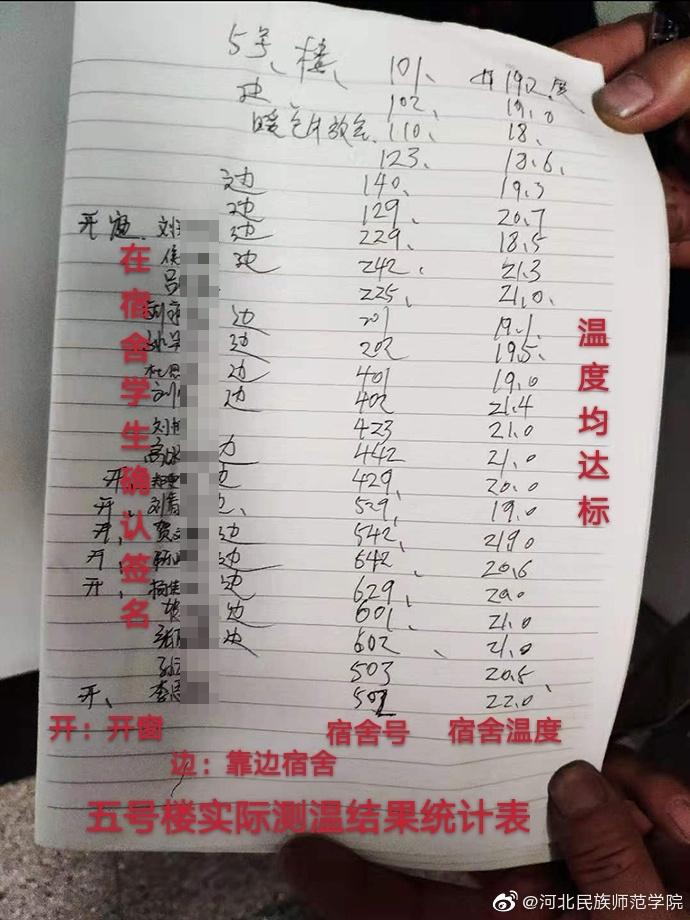 5号楼、 101、 19.2度
边、 102、 19.0
暖气片放含、 110、 18、
123、 18.6、
边 140、 19.3
边 129、 20.7
开窗、刘 边 229、 18.5
侯 边 242、 21.3
吕 225、 21.0、
刘 边 201 19.1、
边 202 19.5、
杜思 边 401 19.0
刘 边 402 21.4
刘 423 21.0
高 442 21.0
开、 429、 20.0
开、刘青 边、 529、 19.0
开、贾文 边 542、 21.0
开、杨 边 642、 20.6
开、杨佳 边 629、 20.0
边 601、 21.0
张 边 602、 21.0
503 20.5、
开、李思 502 22.0、
在宿舍学生确认签名
温度均达标
开：开窗
宿舍号
宿舍温度
边：靠边宿舍
五号楼实际测温结果统计表
@河北民族师范学院